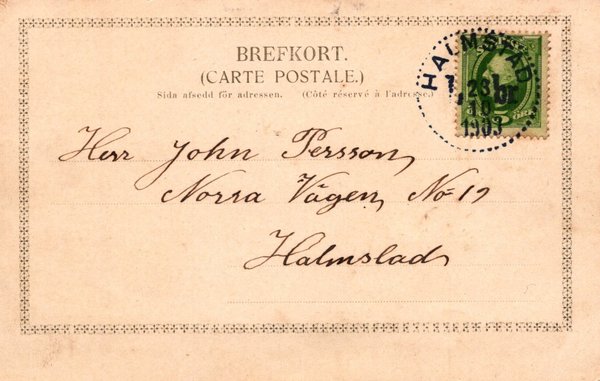 BREFKORT.
(CARTE POSTALE.)
Sida afsedd för adressen. (Côté réservé à l'adresse.)
HALMSTAD
28
10
1903
Herr John Persson,
Norra Vägen, No 17
Halmstad